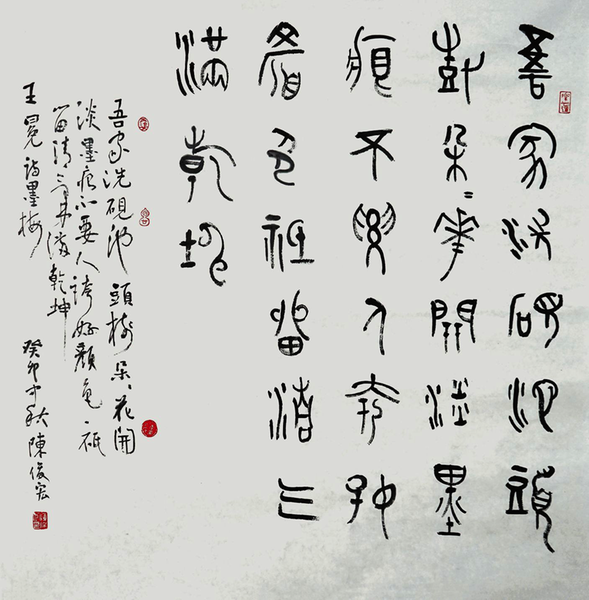 吾家洗硯池頭
樹朵〻花開淡墨
痕不要人夸好
顏色祇留清气
滿乾坤
吾家洗硯池頭樹朵〻花開
淡墨痕不要人誇好顏色祇
留清氣滿乾坤
王冕詩墨梅
癸卯中秋陳俊宏